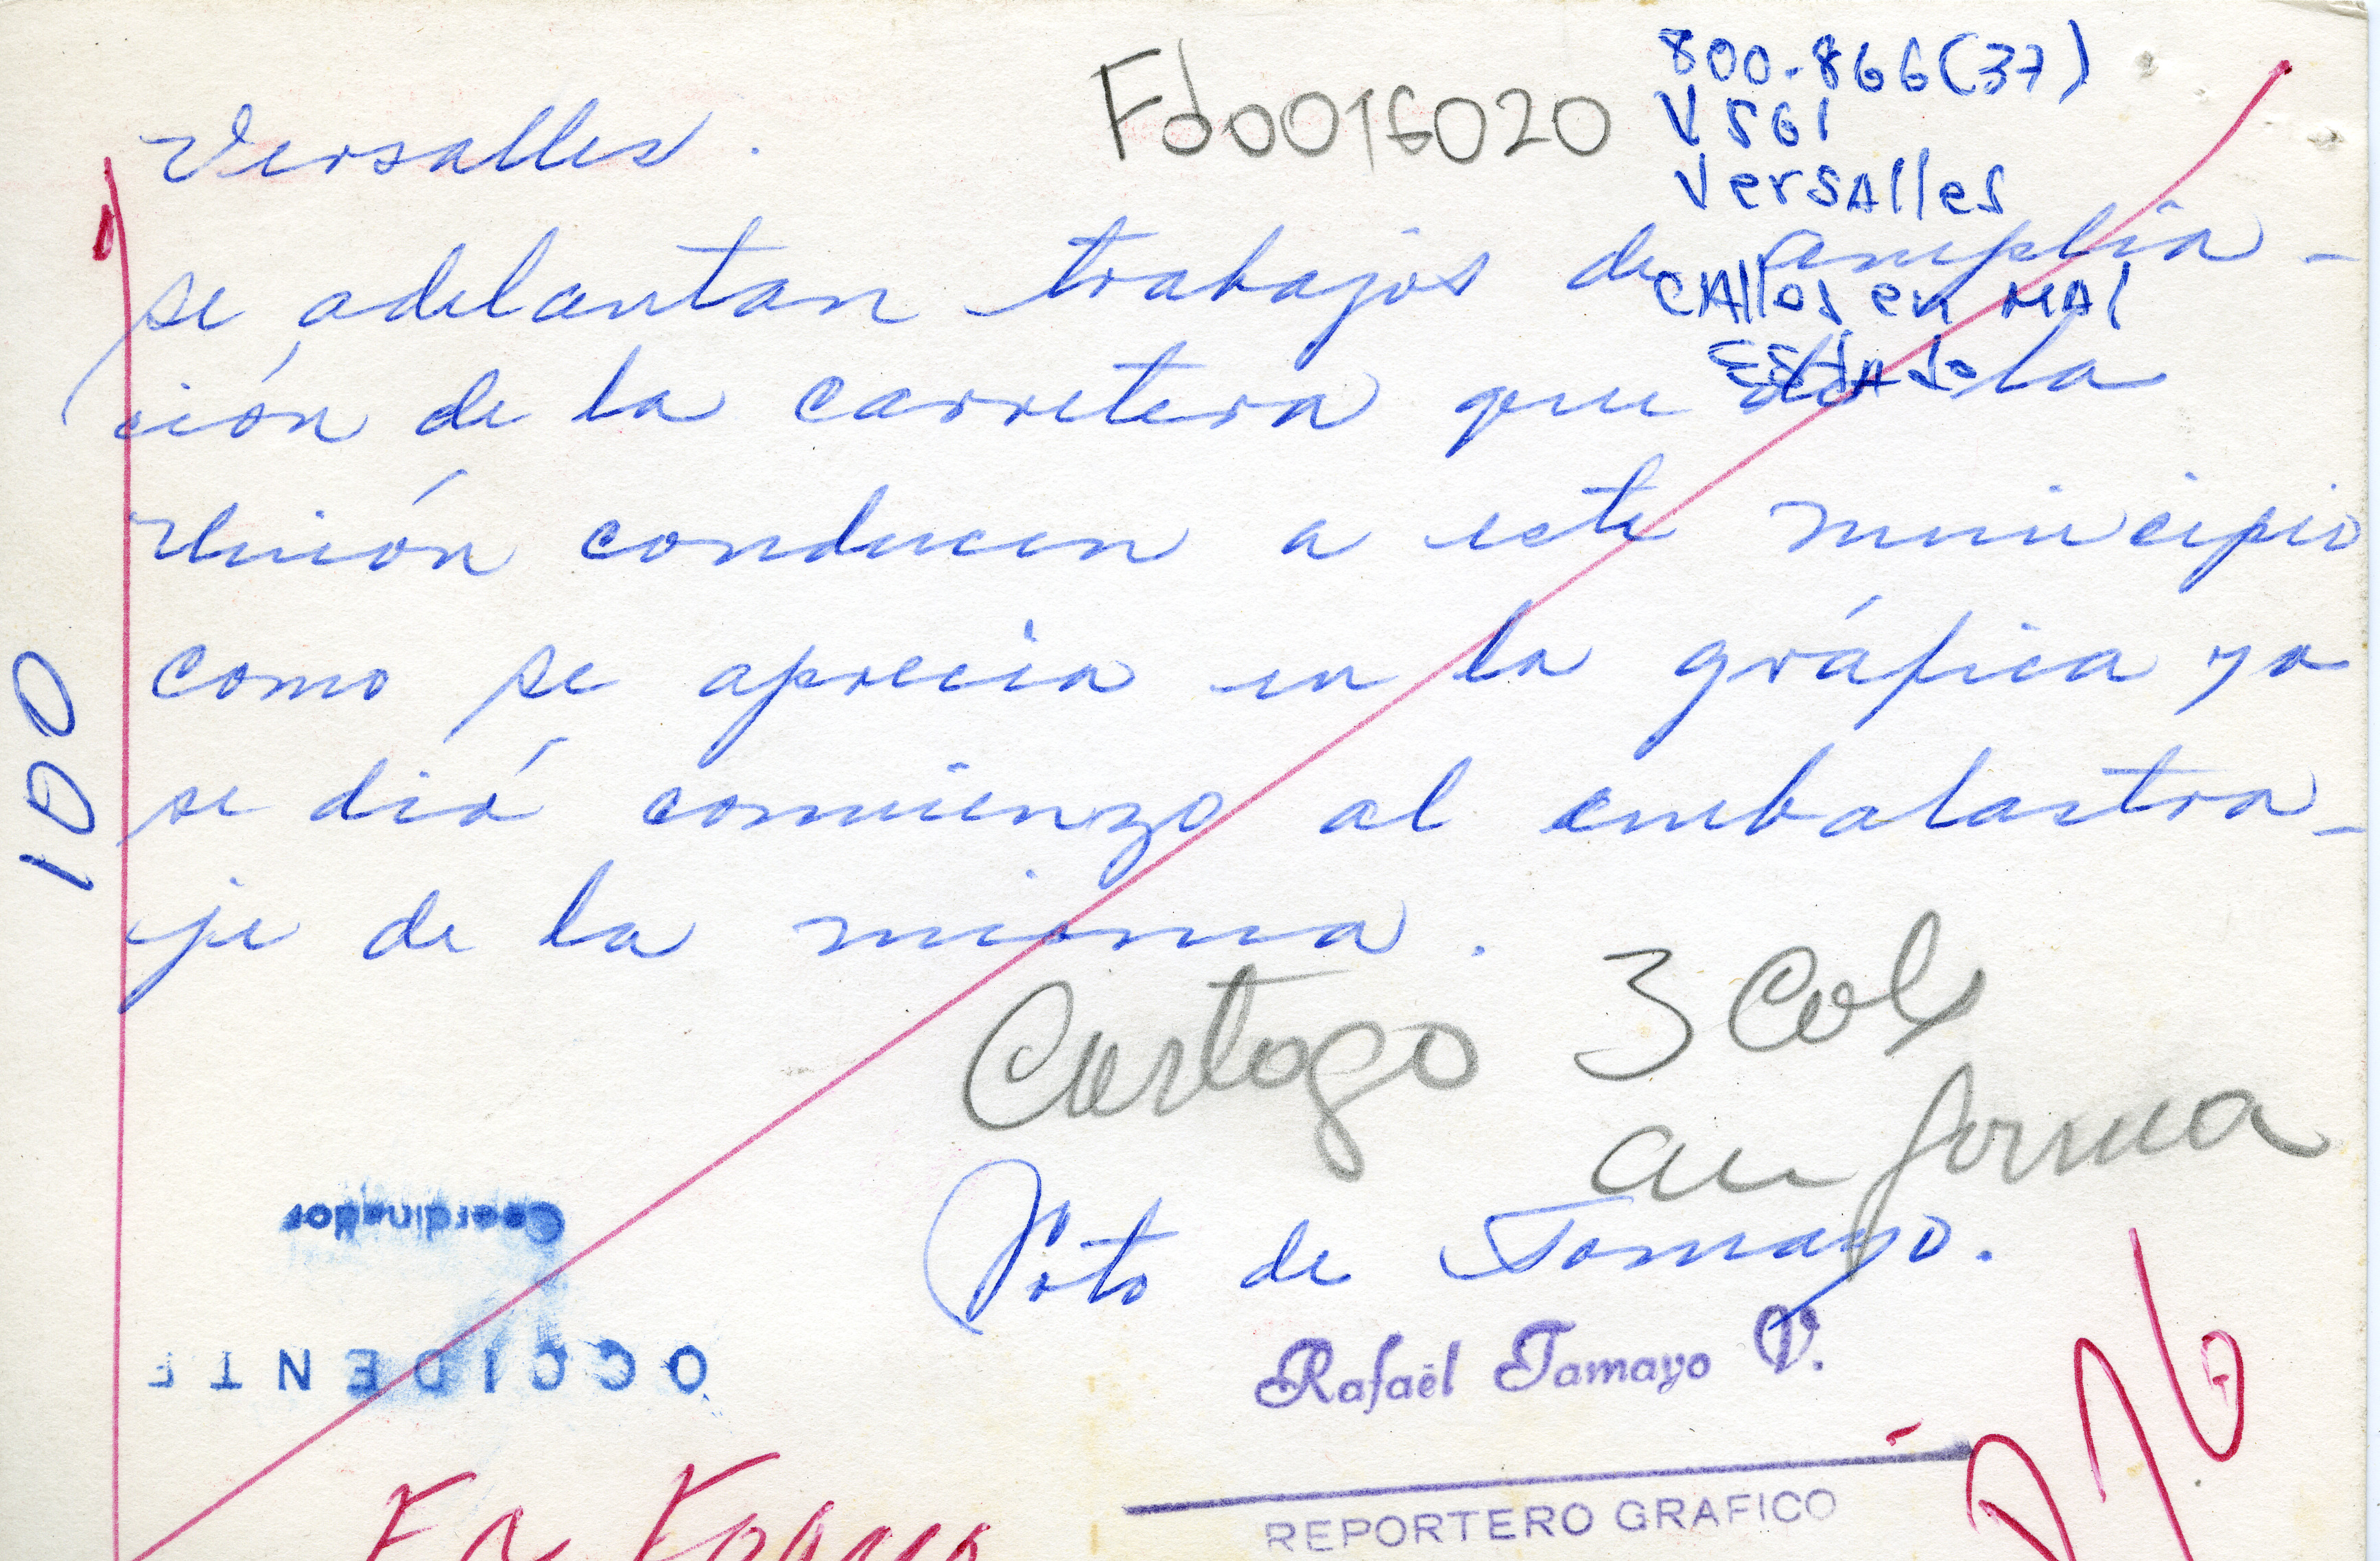 Fd0016020
800-866(37)
V561
VersAlles
CAlles en MAl
EStado
Versalles.
se adelantan trabajos de amplia-
ción de la carretera que de la
Unión conducen a este municipio
como se aprecia en la gráfica ya
se dió comienzo al embalastra-
je de la misma.
100
Cartago 3 Col
en forma
Foto de Tamayo.
Coordinador
OCCIDENTE
Rafaél Tamayo V.
REPORTERO GRAFICO